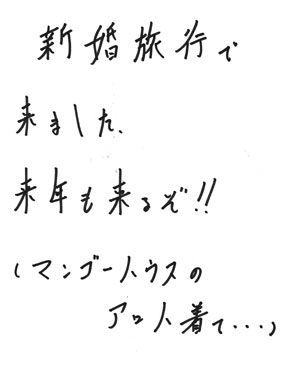 新婚旅行で
来ました、
来年も来るぞ!!
(マンゴーハウスの
アロハ着て...)